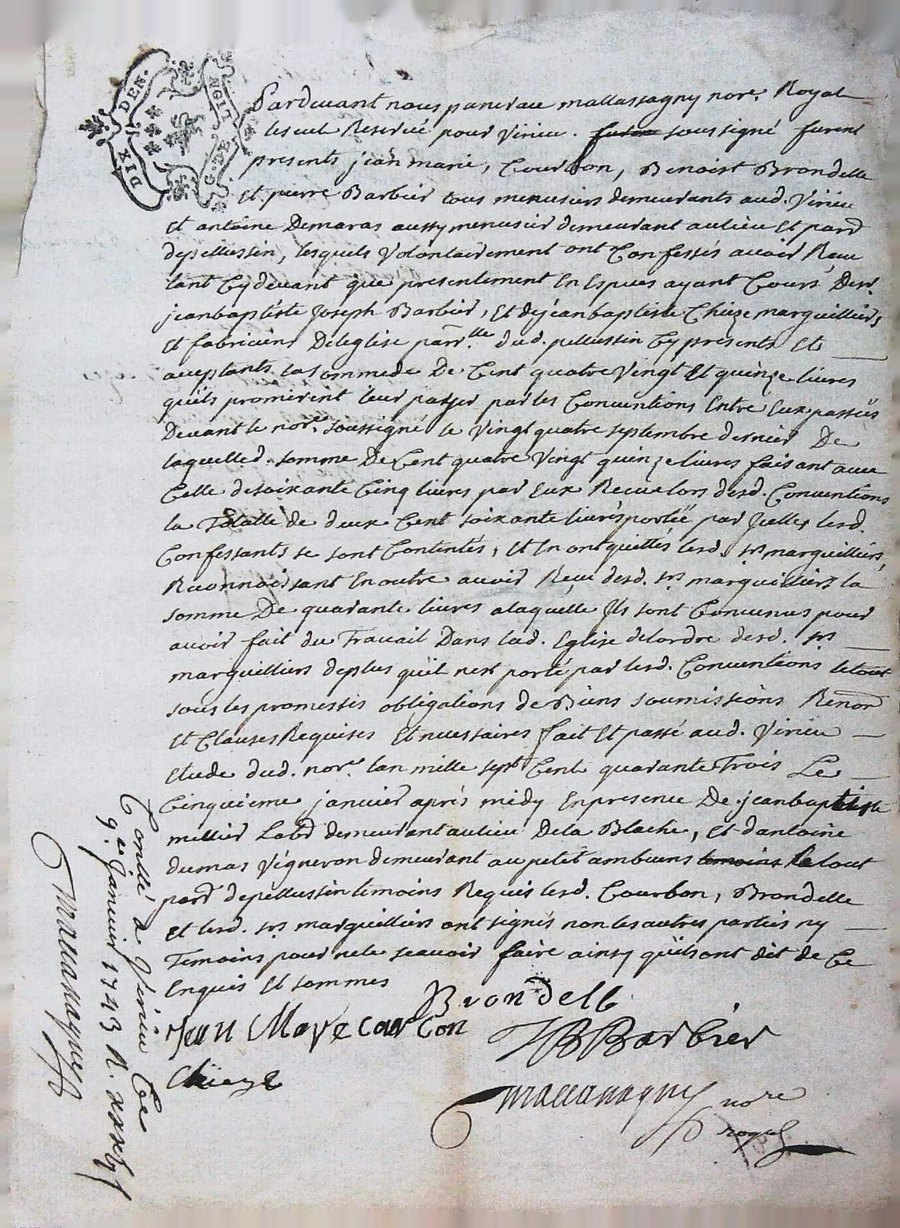 DIX DEN.
G.^AL^ NGIT
Pardevant nous pancrace mallassagny nore. Royal
le seul Reservé pour Virieu. soussigné furent
presents jean marie, Courbon, Benoist Brondelle
Et pierre Barbier tous menusiers demeurants aud. Virieu
Et antoine Demaras aussy menusier demeurant au lieu Et parr
de pellussin, lesquels Volontairement ont Confessés avoir Receu
tant Cydevant que presentement En Especes ayant Cours Des srs.
jean baptiste joseph Barbier, Et de jean baptiste Chieze marguilliers
Et fabriciens De leglise parr.lle dud. pellussin Cy presents Et
acceptants la somme de De Cent quatre Vingt Et quinze livres
quils promirent leur passer par les Conventions Entre Eux passées
Devant le nore. soussigné le Vingt quatre septembre dernier De
laquelle d. somme De Cent quatre Vingt quinze livres faisant avec
Celle de soixante Cinq livres par Eux Receue lors desd. Conventions
la Totallité de deux Cent soixante livres portée par jcelles lesd.
Confessants se sont Contentés, Et En ont quittes lesd. srs marguilliers,
Reconnoissant En outre avoir Receu desd. srs marguilliers la
somme De quarante livres a laquelle Ils sont Convenus pour
avoir fait du Travail Dans lad. Eglise de lordre desd. srs
marguilliers de plus quil nest porté par lesd. Conventions le tout
sous les promesses obligations de Biens soumissions Renon
Et Clauses Requises Et necessaires fait Et passé aud. Virieu
Etude dud. nore. lan mille sept Cent quarante Trois Le
Cinquieme janvier après midy En presence De jean baptiste
millier Labr demeurant au lieu De la Blache, Et dantoine
dumas Vigneron demeurant au petit ambuens le tout
parr de pellussin temoins Requis lesd. Courbon, Brondelle
Et lesd. srs marguilliers ont signés non les autres parties ny
Temoins pour ne le scavoir faire ainsy quils ont dit de Ce
Enquis Et sommes
Brondelle
Jean Marye courbon
JB Barbier
Chieze
nore
royal
Conllé à Virieu Ce
9e janvier 1743 R.